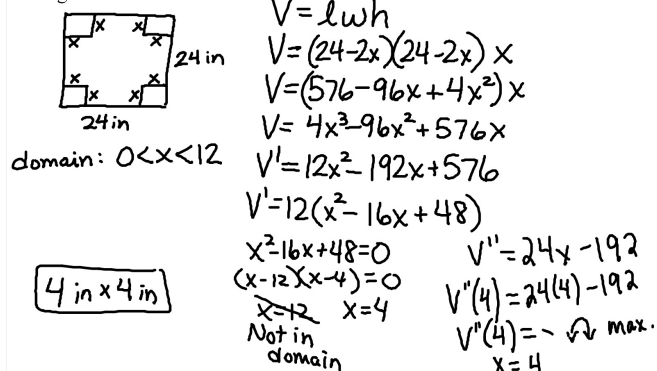 x x
x x
24 in
x x
x x
24 in
domain: 0<x<12
4 in x 4 in
V = lwh
V = (24-2x)(24-2x) x
V = (576-96x+4x²) x
V = 4x³-96x²+576x
V' = 12x²-192x+576
V' = 12(x²-16x+48)
x²-16x+48=0
(x-12)(x-4)=0
x=12 x=4
Not in
domain
V''=24x-192
V''(4)=24(4)-192
V''(4)= - max.
x=4